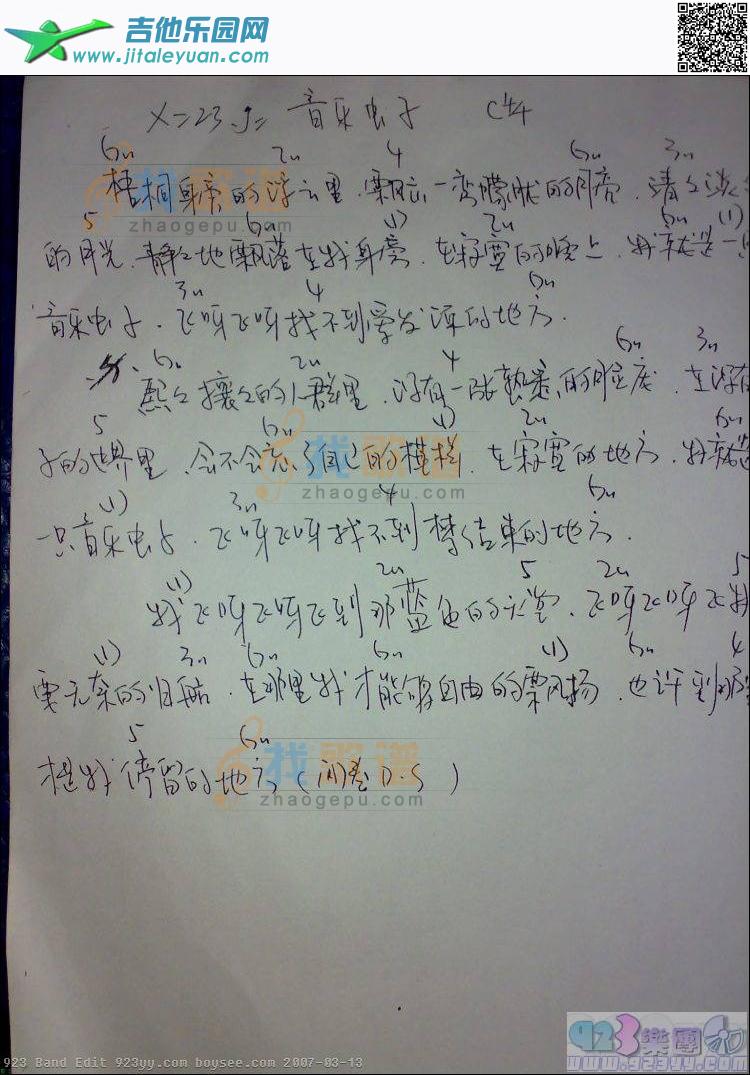 吉他乐园网
www.jitaleyuan.com
音乐虫子 C 4/4
6m 2m 4 6m 3m
梧桐 的浮云里 飘 一弯朦胧的月亮 清
5 6m (1) 2m 6m (1)
的月光 静々地飘落在我身旁 在寂寞的晚上 我就是一
3m 4 6m
音乐虫子 飞呀飞呀找不到爱发源的地方
6m 2m 4 6m 3m
熙々攘々的人群里 没有一张熟悉的脸庞 在没有
5 6m (1) 2m 6m
子的世界里 会不会忘了自己的模样 在寂寞的地方 我就是
(1) 3m 4 6m
一只音乐虫子 飞呀飞呀找不到梦结束的地方
(1) 2m 5 2m 5
我飞呀飞呀飞到那蓝色的天堂 飞呀飞呀飞 我
(1) 3m 6m 6m (1) 6m 4
要无奈的归航 在那里我才能够自由的飘扬 也许到那里
5 6m
才是我停留的地方 (间奏 D.S)
找歌谱
zhaogepu.com
找歌谱
zhaogepu.com
找歌谱
zhaogepu.com
923 Band Edit 923yy.com boysee.com 2007-03-13
923樂團
www.923yy.com